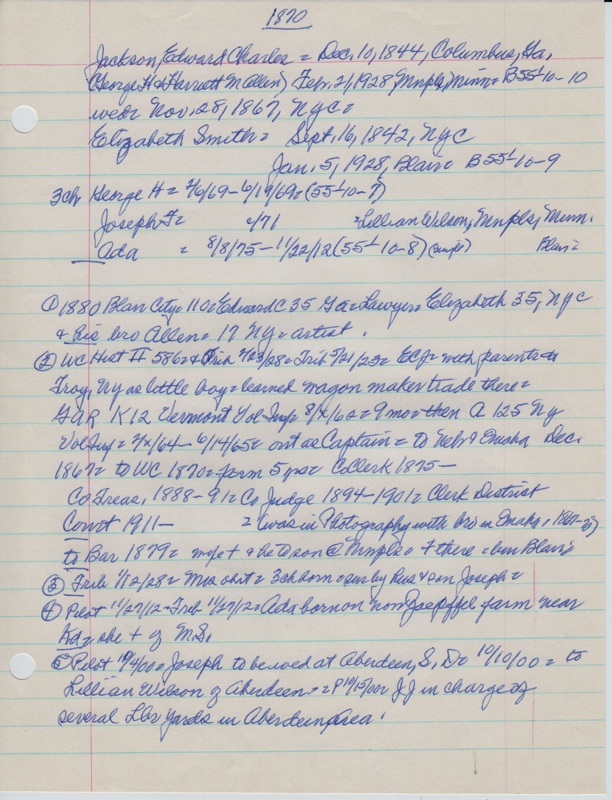 1870
Jackson, Edward Charles = Dec, 10, 1844, Columbus, Ga,
(George H & Harriett M Allen) Feb. 2, 1928, Mnpls, Minn = B 55 L 10-10
wed = Nov. 28, 1867, NYC =
Elizabeth Smith = Sept. 16, 1842, NYC
Jan. 5, 1928, Blair = B 55 L 10-9
3 ch George H = 4/6/69 - 6/19/69 = (55 L 10-7)
Joseph = /71 = Lillian Wilson, Mnpls, Minn.
Ada = 8/8/75 - 11/22/12 (55 L 10-8) Blair =
① 1880 Blair City = 110 = Edward C 35 Ga = Lawyer = Elizabeth 35, NYC
& his bro Allen = 17 NY = artist.
② WC Hist II 586 = & Trib = Trib = ECJ = with parents to
Troy, NY as little boy = learned wagon maker trade there =
GAR K 12 Vermont Vol Inf = 8/x/62 = 9 mo = then A 125 NY
Vol Inf = 2/x/64 - 6/14/65 = out as Captain = to Nebr & Omaha Dec.
1867 = to WC 1870 = farm 5 yrs = Co Clerk 1875 -
Co Treas, 1888-91 = Co Judge 1894-1901 = Clerk District
Court 1911 - = was in Photography with bro in Omaha =
to Bar 1879 = wife + & he to son @ Mnpls = + there = bur Blair
③ Trib 1/12/28 = Mrs obit = 3 ch born = sur by hus & son Joseph =
④ Pilot 11/27/12 = Trib 11/27/12 = Ada born on farm near
Kd = she + of M.S.
⑤ Pilot 10/4/00 = Joseph to be wed at Aberdeen, S, D = 10/10/00 = to
Lillian Wilson of Aberdeen = = P 10/10/00 JJ in charge of
several Lbr Yards in Aberdeen area.